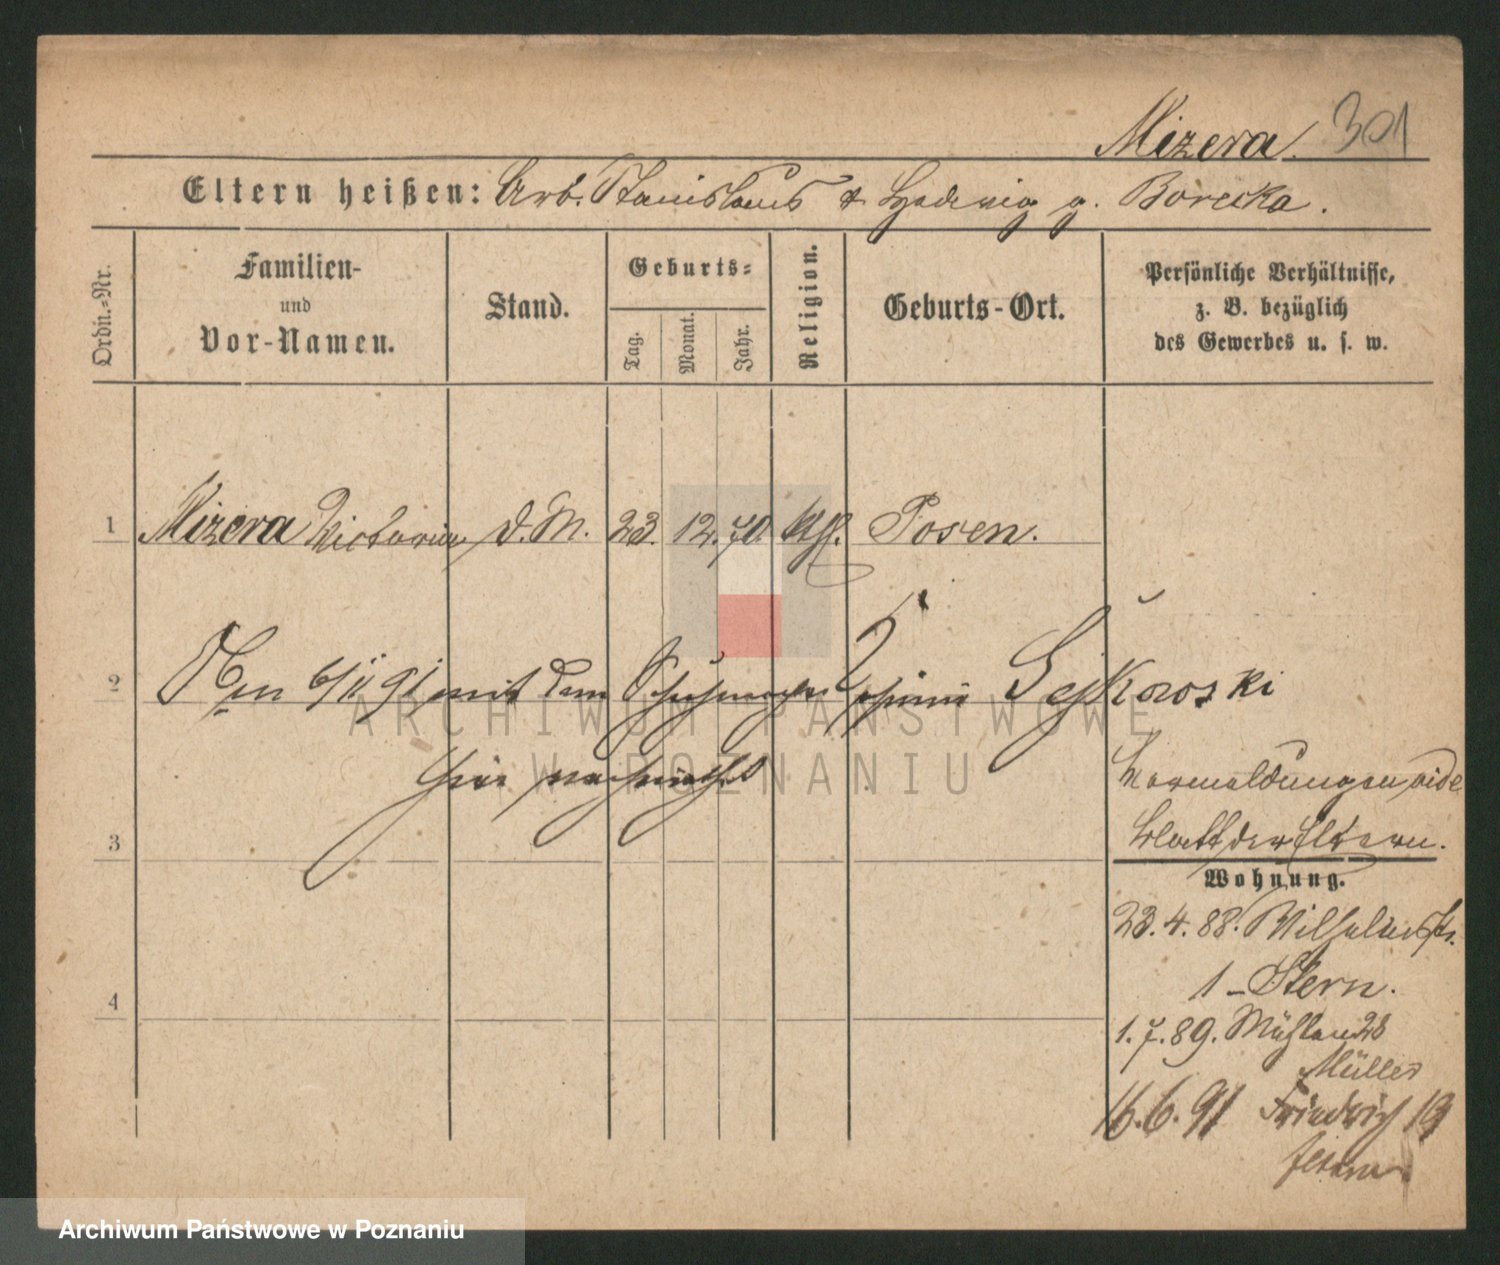 Mizera. 301
Eltern heißen: Arb. Stanislaus & Hedwig g. Borecka.
Ordn.-Nr.
Familien-
und
Vor-Namen.
Stand.
Geburts-
Tag.
Monat.
Jahr.
Religion.
Geburts-Ort.
Persönliche Verhältnisse,
z. B. bezüglich
des Gewerbes u. s. w.
1 Mizera Victoria d. M. 23. 12. 70. kth. Posen.
2 Am 6/11 91 mit dem Schuhmacher Sejkowski
hier verheirathet
3
Vormeldungen vide
Blatt der Eltern.
Wohnung.
23.4.88. Wilhelmstr.
1 - Stern.
4
1.7.89. Mühlen 28
Müller
16.6.91 Friedrich 19
Eltern
ARCHIWUM PAŃSTWOWE
W POZNANIU
Archiwum Państwowe w Poznaniu